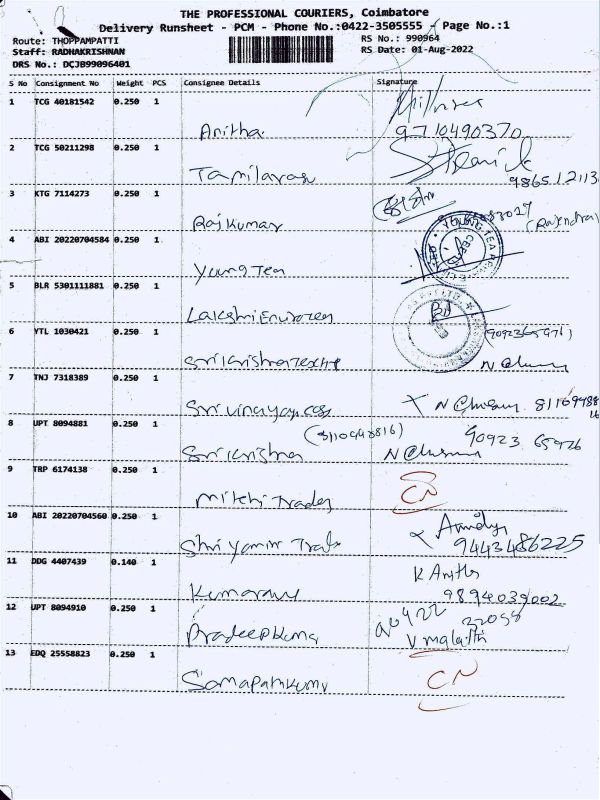 THE PROFESSIONAL COURIERS, Coimbatore
Delivery Runsheet - PCM - Phone No.:0422-3505555 - Page No.:1
Route: THOPPAMPATTI RS No.: 990964
Staff: RADHAKRISHNAN RS Date: 01-Aug-2022
DRS No.: DCJB99096401
S No Consignment No Weight PCS Consignee Details Signature
1 TCG 40181542 0.250 1
Anitha 9710490370
2 TCG 50211298 0.250 1
Tamilarasu
3 KTG 7114273 0.250 1
Rajkumar (Rajendra)
4 ABI 20220704584 0.250 1
Yung Tea
5 BLR 5301111881 0.250 1
Lakshmi
6 YTL 1030421 0.250 1
Srikrishna
7 TNJ 7318389 0.250 1
Sri vinayaga
8 UPT 8094881 0.250 1
Srikrishna (8110948816) 90923 65926
9 TRP 6174138 0.250 1
Mithi Trades CN
10 ABI 20220704560 0.250 1
Shri yamini 9443486225
11 DDG 4407439 0.140 1
K Anitha
9894039002
12 UPT 8094910 0.250 1
Pradeepkuma V malathi
13 EDQ 25558823 0.250 1
Somapathkumr CN